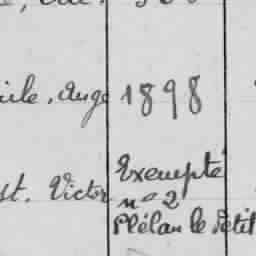 ile, Ange 1898
st. Victor Exempté
n° 2
Plélan le Petit